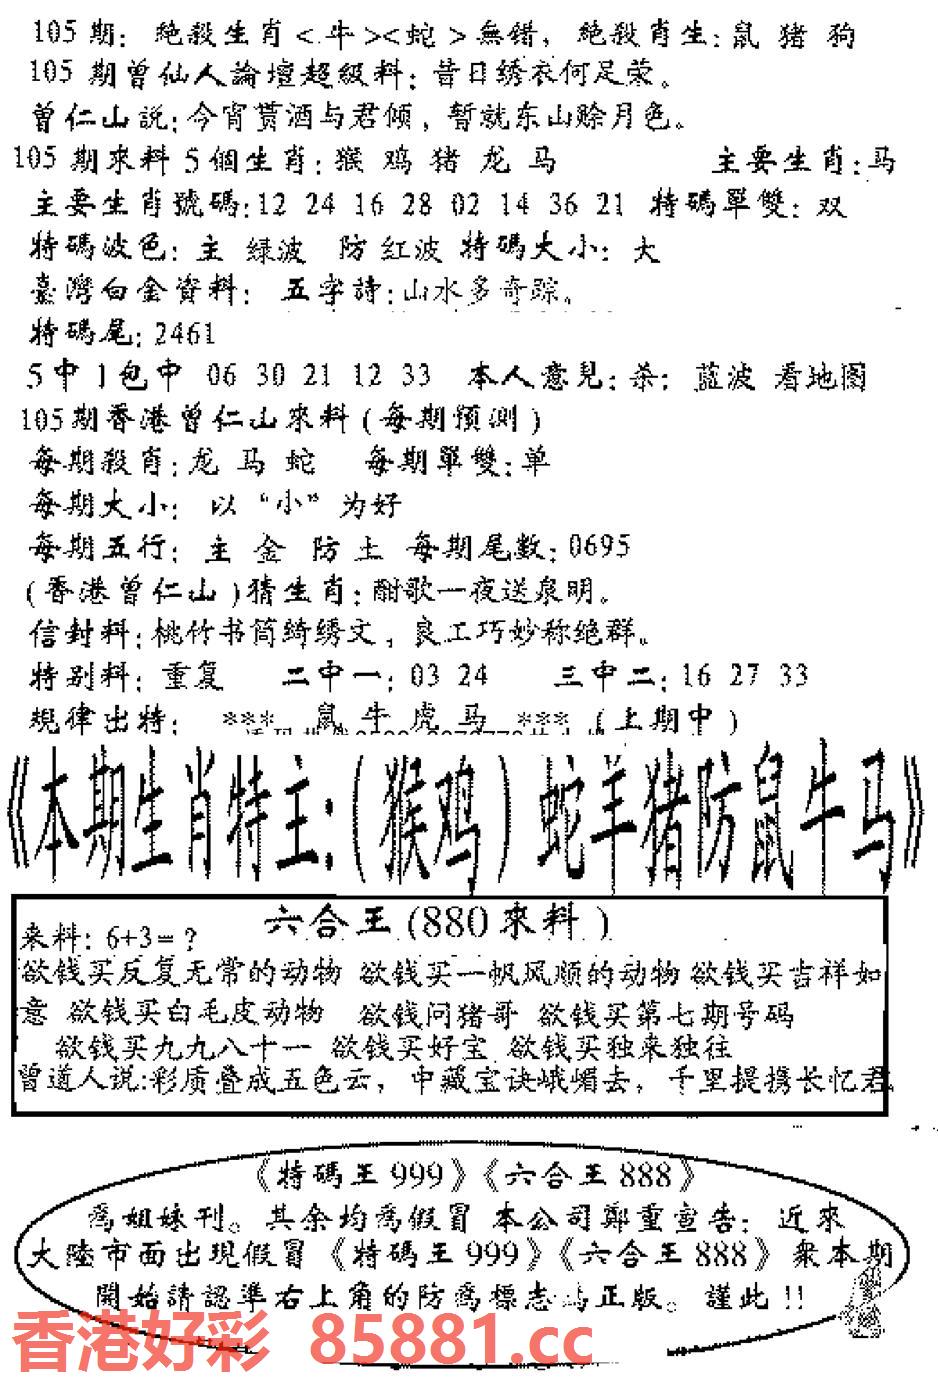 105期: 絶殺生肖<牛><蛇>無錯, 絶殺肖生:鼠 猪 狗
105期曾仙人論壇超級料:昔日绣衣何足荣。
曾仁山説:今宵贳酒与君倾, 暫就东山赊月色。
105期來料5個生肖:猴 鸡 猪 龙 马 主要生肖:马
主要生肖號碼:12 24 16 28 02 14 36 21 特碼單雙: 双
特碼波色: 主 绿波 防 红波 特碼大小: 大
臺灣白金資料: 五字詩:山水多奇踪。
特碼尾:2461
5中1包中 06 30 21 12 33 本人意見:恭: 蓝波 看地图
105期香港曾仁山來料(每期預測)
每期殺肖:龙 马 蛇 每期單雙:单
每期大小: 以“小”为好
每期五行: 主 金 防 土 每期尾数:0695
(香港曾仁山)猜生肖:酣歌一夜送泉明。
信封料:桃竹书筒绮绣文, 良工巧妙称绝群。
特别料: 重复 二中一: 03 24 三中二:16 27 33
規律出特: *** 鼠 牛 虎 马 *** (上期中)
《本期生肖特主:(猴鸡)蛇羊猪防鼠牛马》
六合王(880來料)
来料: 6+3=?
欲钱买反复无常的动物 欲钱买一帆风顺的动物 欲钱买吉祥如
意 欲钱买白毛皮动物 欲钱问猪哥 欲钱买第七期号码
欲钱买九九八十一 欲钱买好宝 欲钱买独来独往
曾道人说:彩质叠成五色云, 中藏宝诀峨嵋去, 千里提携长忆君.
《特碼王999》《六合王888》
爲姐妹刊。其余均爲假冒 本公司鄭重宣告: 近來
大陸市面出現假冒《特碼王999》《六合王888》衆本期
開始請認準右上角的防爲標志爲正版。謹此!!
香港好彩 85881.cc